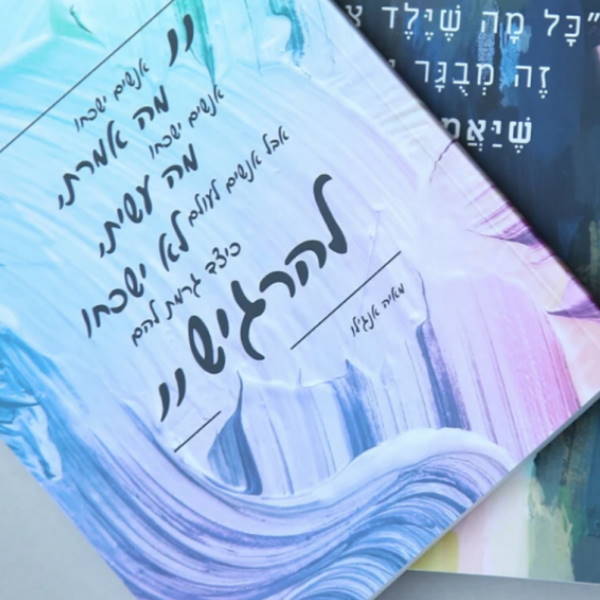 "
אנשים ישכחו
מה אמרתי,
אנשים ישכחו
מה עשיתי,
אבל אנשים לעולם
לא ישכחו
כיצד גרמת להם
להרגיש"
מאיה אנג'לו
"כָּל מָה שֶׁיֶּלֶד
זֶה מְבֻגָּר